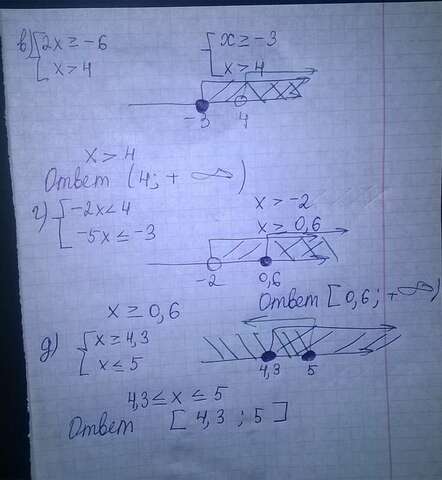 в) { 2x ≥ -6   { x ≥ -3
{ x > 4   { x > 4
-3   4
x > 4
Ответ (4; +∞)
г) { -2x < 4   x > -2
{ -5x ≤ -3   x ≥ 0,6
-2   0,6
x ≥ 0,6   Ответ [0,6; +∞)
д) { x ≥ 4,3
{ x ≤ 5
4,3   5
4,3 ≤ x ≤ 5
Ответ [4,3; 5]